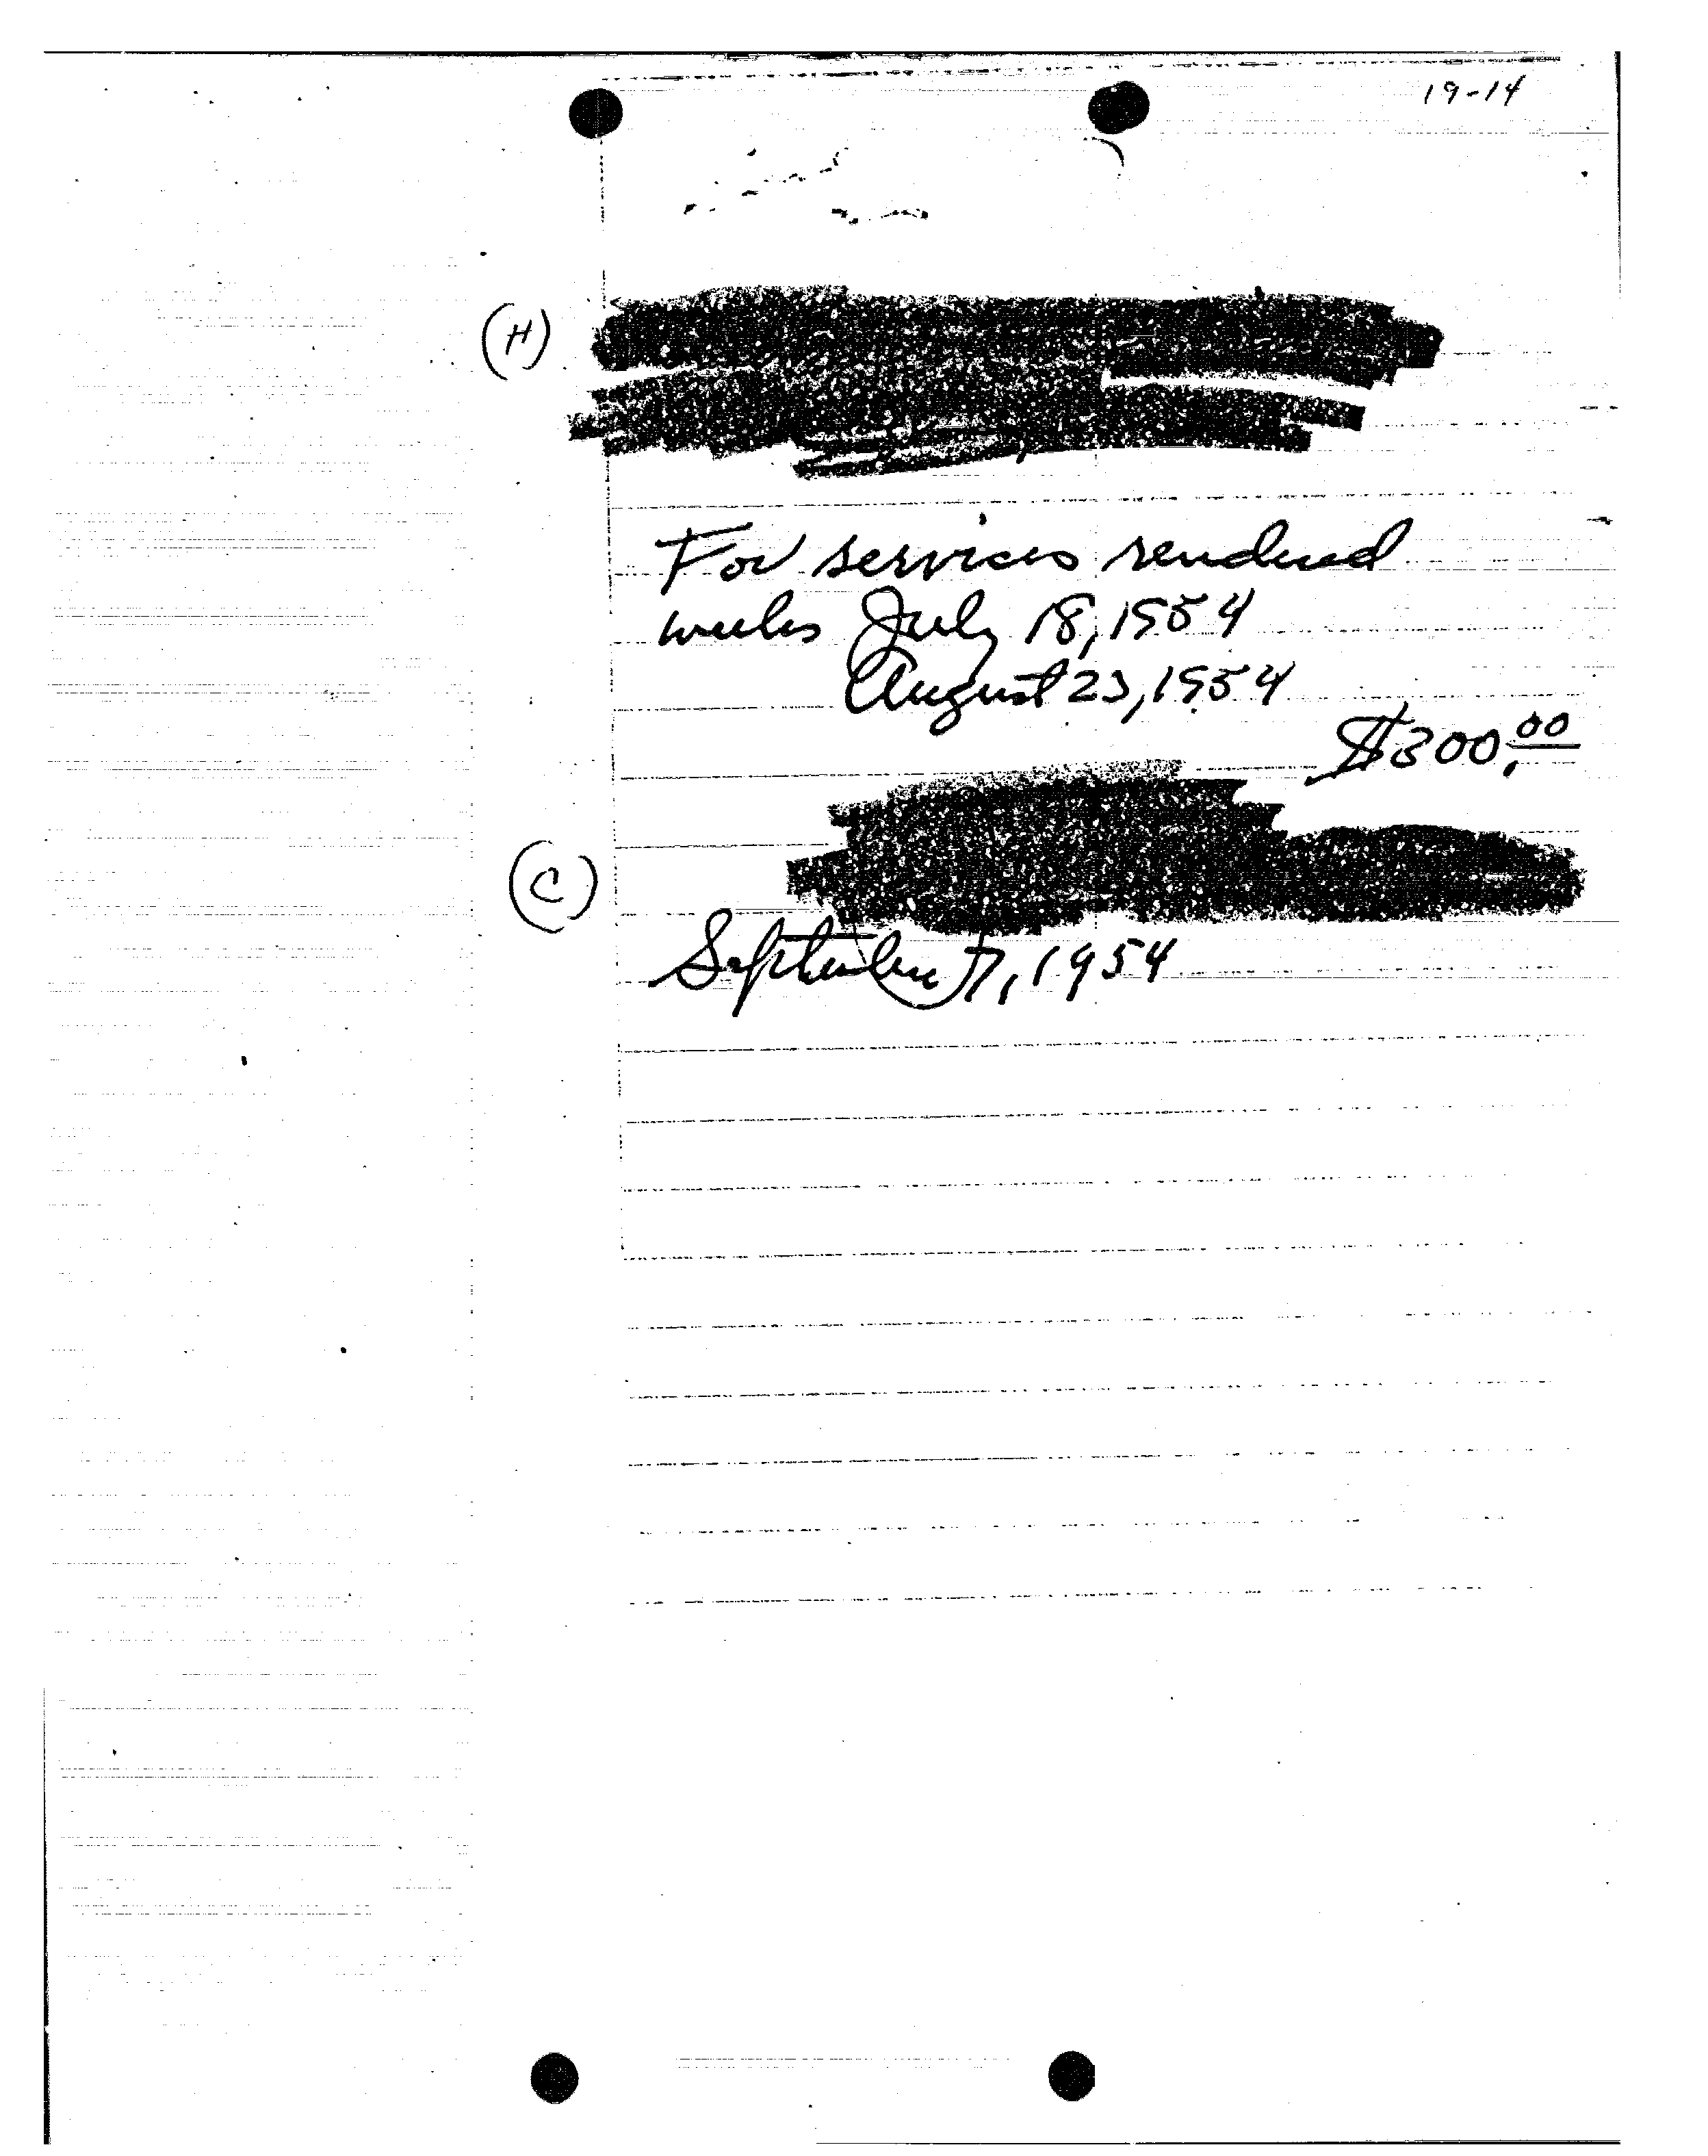 19-14
(H)
For services rendered
weeks July 18, 1954
August 23, 1954
$300.00
(C)
September 7, 1954